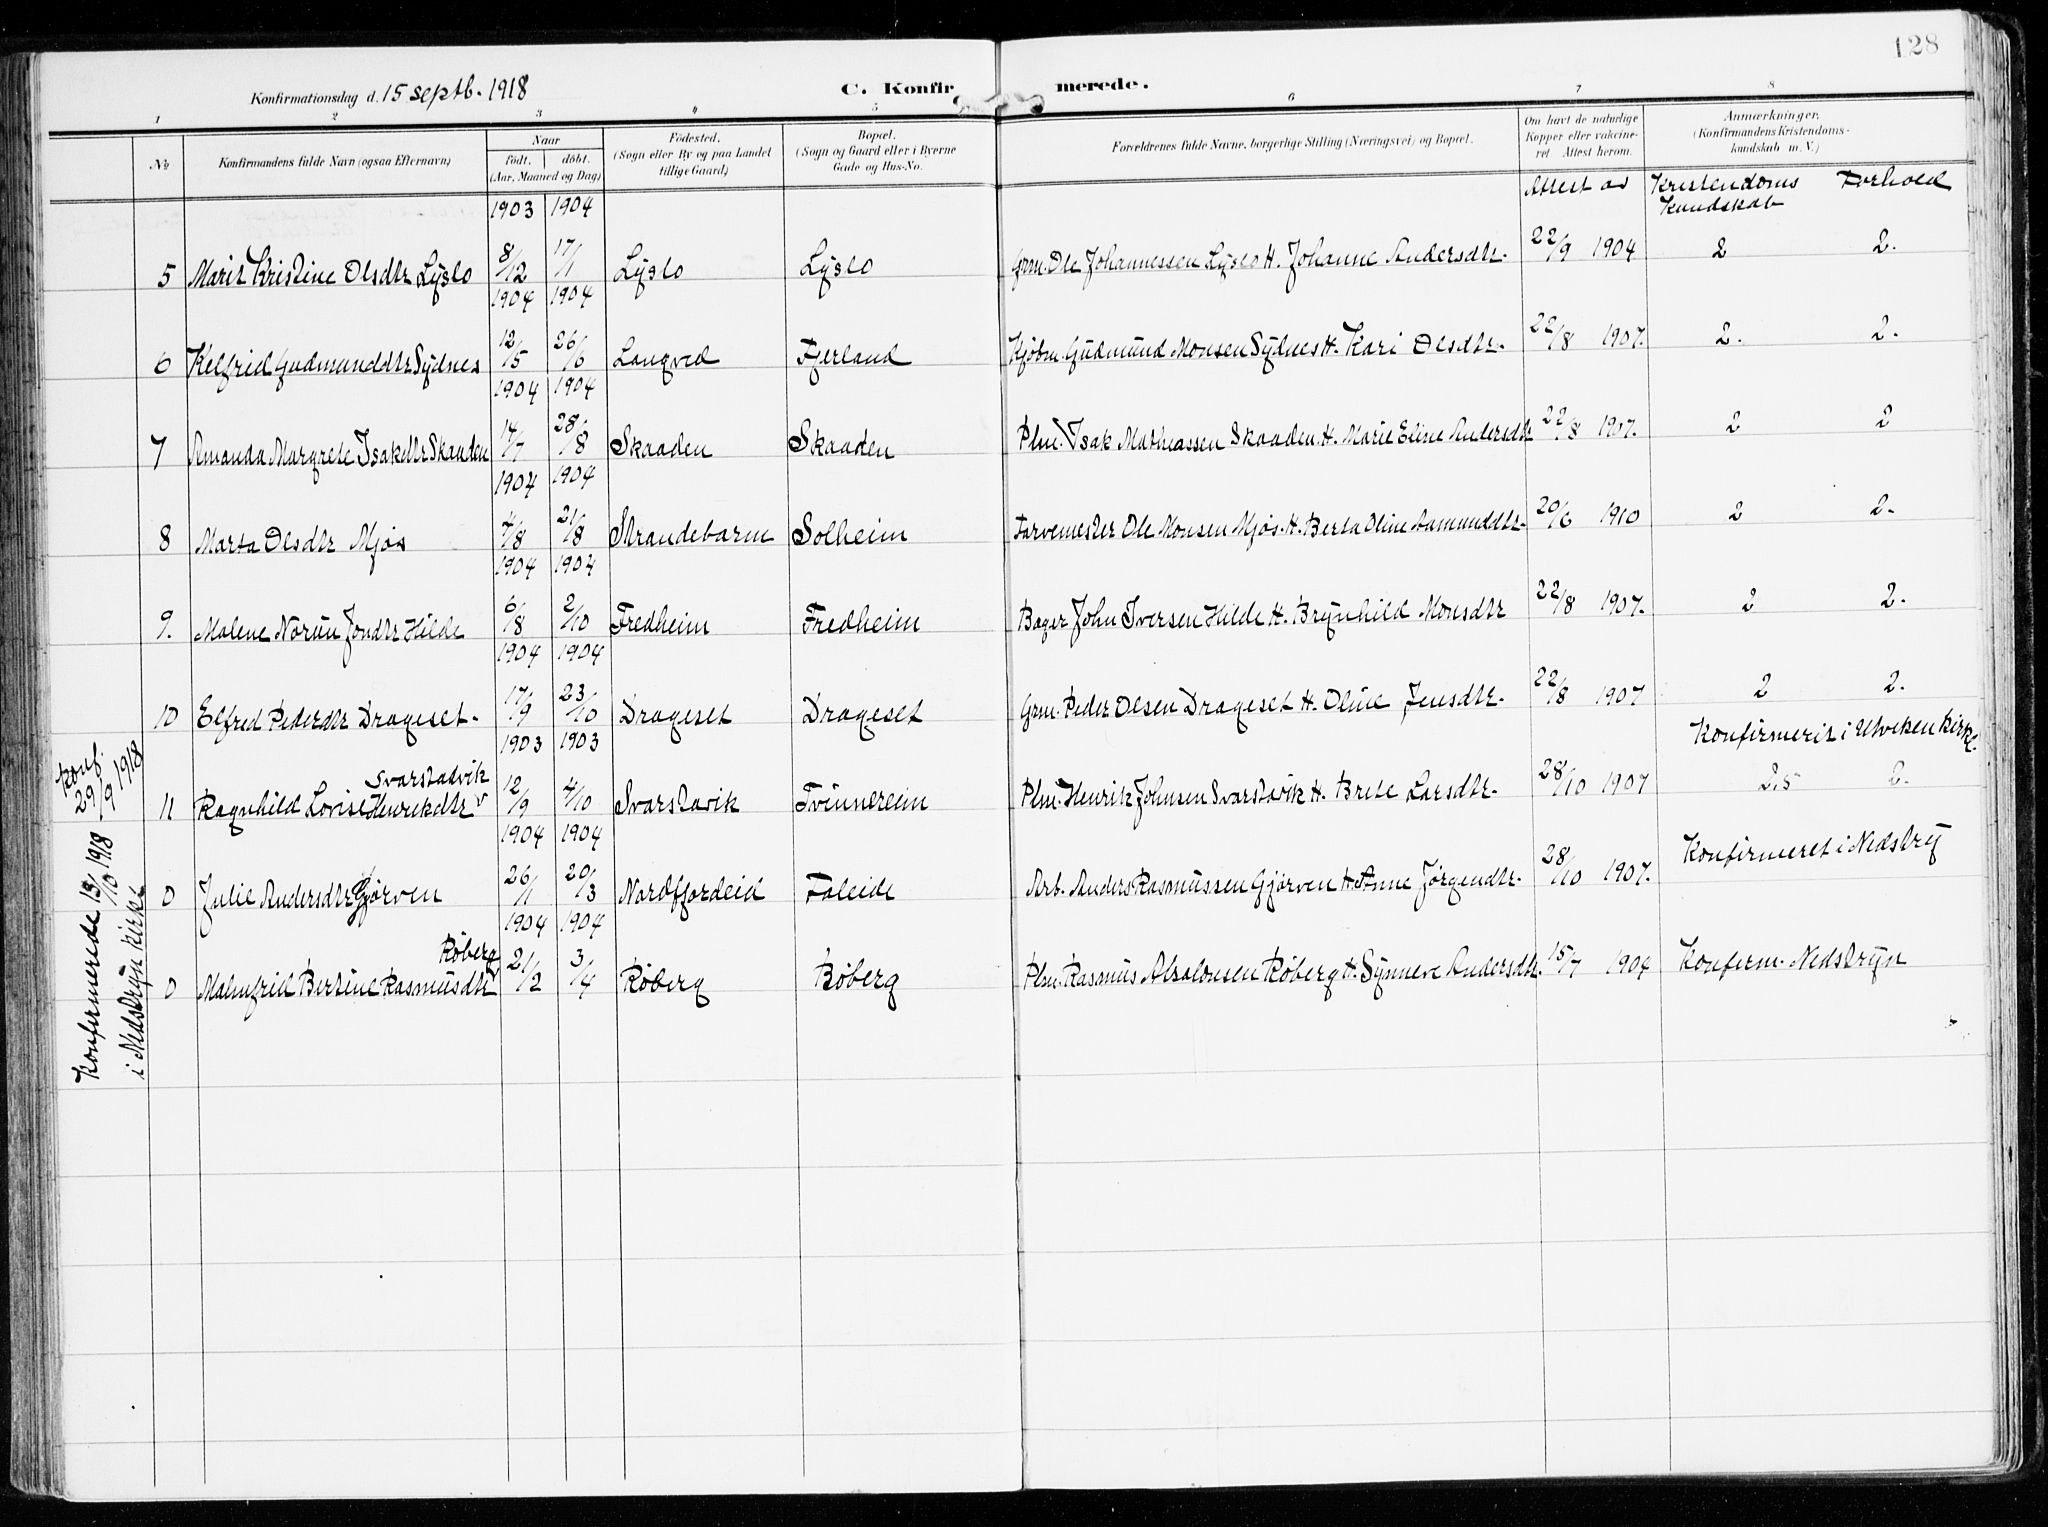 128
Konfirmationsdag d. 15 septb. 1918 C. Konfirmerede.
1 2 3 4 5 6 7 8
No. Konfirmandens fulde Navn (ogsaa Efternavn) Naar født. døbt. (Aar, Maaned og Dag) Fødested. (Sogn eller By og paa Landet tillige Gaard) Bopæl. (Sogn og Gaard eller i Byerne Gade og Hus-No. Forældrenes fulde Navne, borgerlige Stilling (Næringsvei) og Bopæl. Om havt de naturlige Kopper eller vakcineret. Attest herom. Anmærkninger. (Konfirmandens Kristendomskundskab m. V.)
Attest av Kristendoms Kundskab Forhold
1903 1904
5 Marit Kristine Olsdtr Lyslo 8/12 17/1 Lyslo Lyslo Grm. Ole Johannessen Lyslo H. Johanne Andersdtr. 22/9 1904 2 2.
1904 1904
6 Kelfrid Gudmunddtr Sydnes 12/5 26/6 Langved Fjerland Kjøbm. Gudmund Monsen Sydnes H. Kari Olsdtr. 22/8 1907. 2. 2.
1904 1904
7 Amanda Margrete Isakdtr Skaaden 14/7 28/8 Skaaden Skaaden Plm. Isak Mathiassen Skaaden. H. Marie Eline Andersdtr 22/8 1907. 2 2
1904 1904
8 Marta Olsdtr Mjøs 4/8 21/8 Strandebarm Solheim Farvemester Ole Monsen Mjøs. H. Berta Oline Aamunddtr. 20/6 1910 2 2.
1904 1904
9. Malene Norun Jondtr Hilde 6/8 2/10 Fredheim Fredheim Bager John Iversen Hilde H. Brynhild Monsdtr 22/8 1907. 2 2.
1904 1904
10 Elfred Pederdtr Drageset. 17/9 23/10 Drageset Drageset Grm. Peder Olsen Drageset H. Oline Jensdtr. 22/8 1907 2 2.
1903 1903 Konfirmerit i Utviken kirke.
konf. 29/9 1918
Svarstadvik
11 Ragnhild Lovise Henrikdtr v 12/9 4/10 Svarstavik Tvinnereim Plm. Henrik Johnsen Svarstavik H. Brete Larsdtr. 28/10 1907 2,5 2.
1904 1904 Konfirmeret i Nedstry
0 Julie Andersdtr Gjørven 26/1 20/3 Nordfjordeid Faleide Arb. Anders Rasmussen Gjørven H. Anne Jørgendtr. 28/10 1907.
1904 1904
Røberg
0 Malmfrid Bertine Rasmusdtr 21/2 3/4 Røberg Røberg Plm. Rasmus Absalonsen Røberg H. Synneve Andersdtr. 15/7 1904 Konfirm. Nedstryn
Konfirmerede 13/10 1918
i Nedstryn kirke